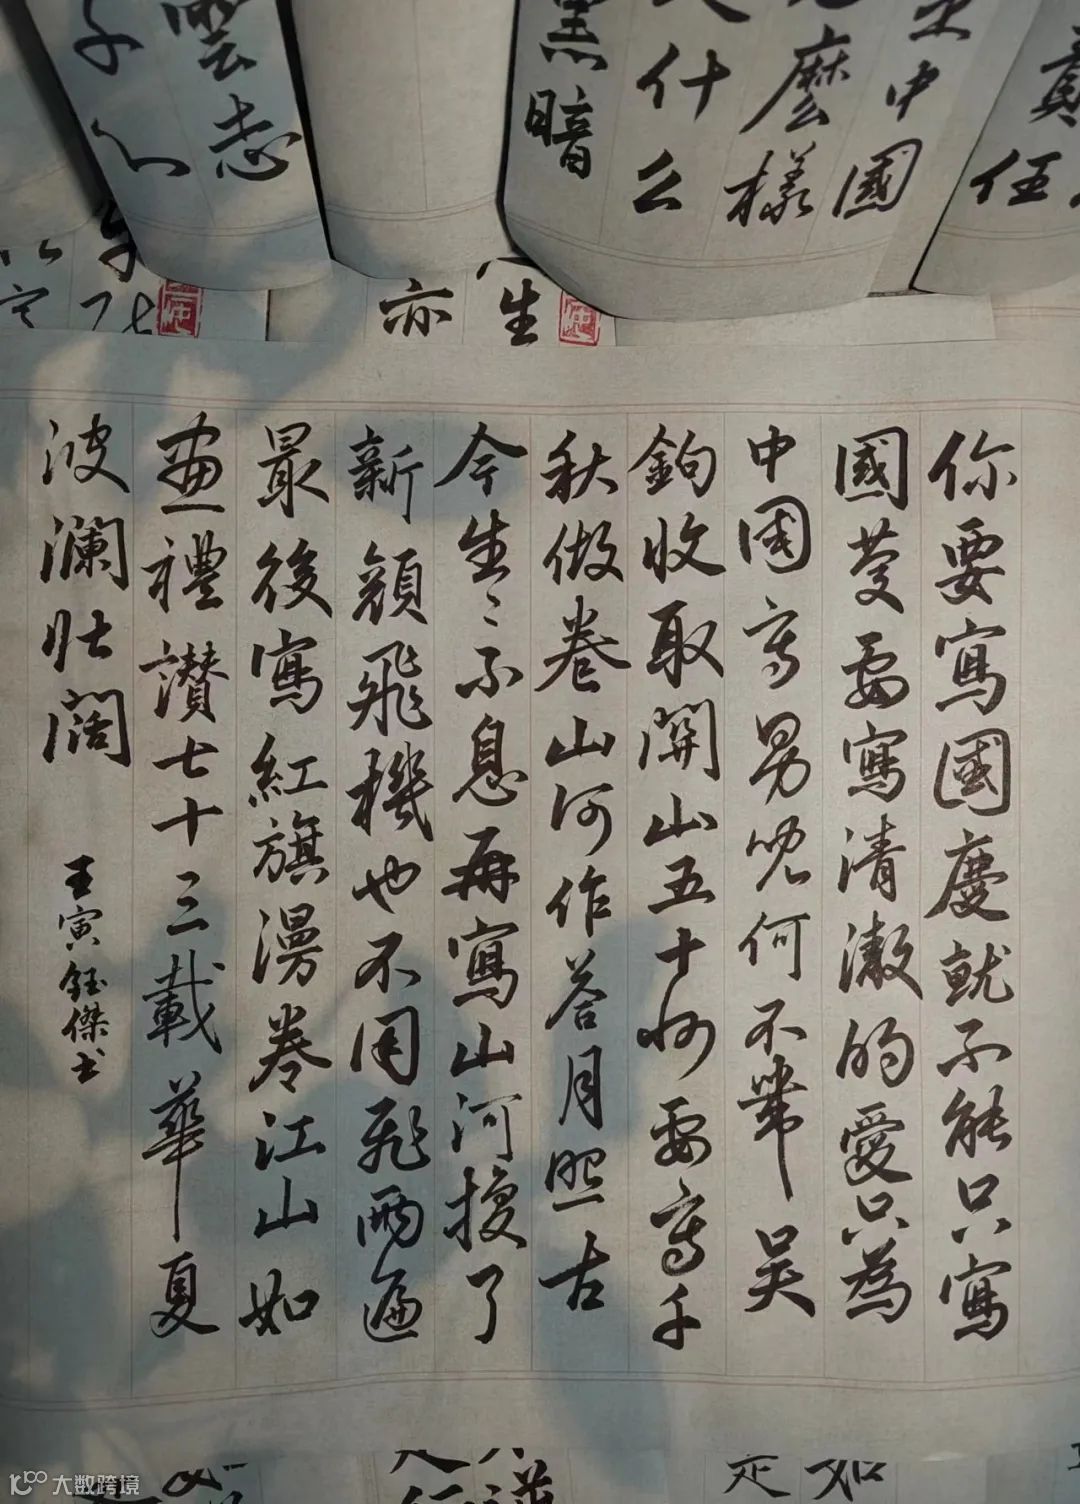 伍
中國
麼樣
什么
黑暗
雲志
生
亦
你要寫國慶就不能只寫
國慶要寫清澈的愛只為
中國寫男兒何不帶吳
鉤收取關山五十州要寫千
秋做卷山河作答月照古
今生〻不息再寫山河換了
新顏飛機也不用飛兩遍
最後寫紅旗漫卷江山如
畫禮讃七十三載華夏
波瀾壯闊
壬寅鈺傑书
如
大数跨境